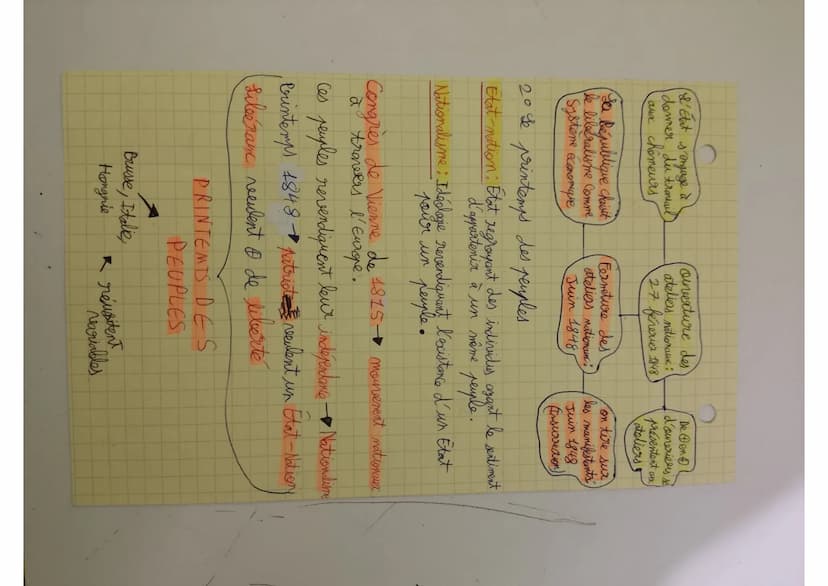 L'État s'engage à
donner du travail
aux chômeurs
Ouverture des
ateliers nationaux:
27 février 1848
De ⊕ en ⊕
d'ouvriers se
présentent aux
ateliers
La République choisit
le libéralisme comme
système économique
Fermeture des
ateliers nationaux:
Juin 1848
on tire sur
les manifestants
Juin 1848
(Insurrection)
2° Le printemps des peuples
État-nation: État regroupant des individus ayant le sentiment
d'appartenir à un même peuple.
Nationalisme: Idéologie revendiquant l'existence d'un État
pour un peuple.
Congrès de Vienne de 1815 → mouvement nationaux
à travers l'Europe.
Ces peuples revendiquent leur indépendance → Nationalisme
Printemps 1848 → patriote veulent un État-Nation
Libéraux veulent ⊕ de liberté
PRINTEMPS DES
PEUPLES
Prusse, Italie,
Hongrie
résistent